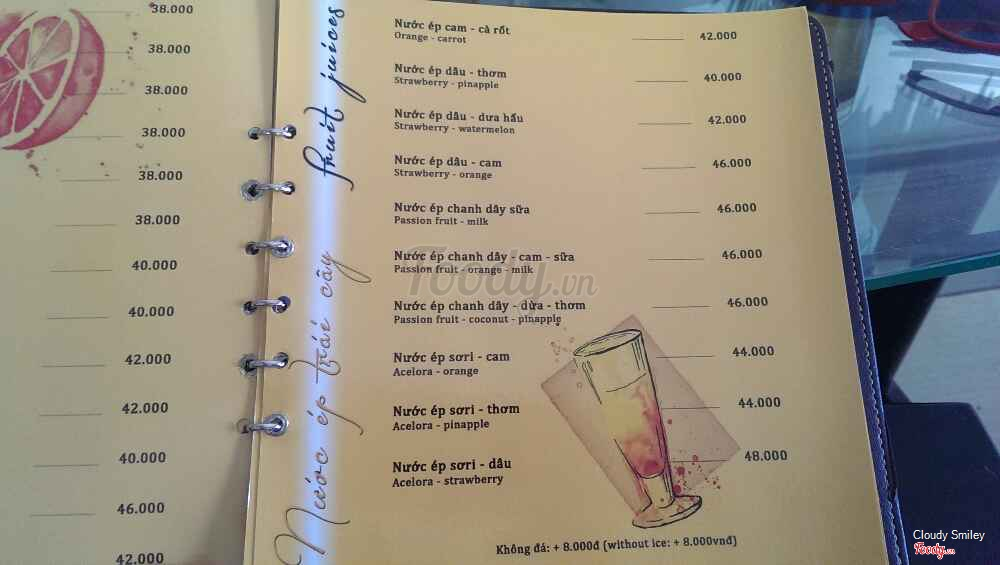 38.000
38.000
38.000
38.000
38.000
38.000
40.000
40.000
42.000
42.000
40.000
46.000
42.000
Nước ép trái cây fruit juices
Nước ép cam - cà rốt 42.000
Orange - carrot
Nước ép dâu - thơm 40.000
Strawberry - pinapple
Nước ép dâu - dưa hấu 42.000
Strawberry - watermelon
Nước ép dâu - cam 46.000
Strawberry - orange
Nước ép chanh dây sữa 46.000
Passion fruit - milk
Nước ép chanh dây - cam - sữa 46.000
Passion fruit - orange - milk
Nước ép chanh dây - dừa - thơm 46.000
Passion fruit - coconut - pinapple
Nước ép sơri - cam 44.000
Acelora - orange
Nước ép sơri - thơm 44.000
Acelora - pinapple
Nước ép sơri - dâu 48.000
Acelora - strawberry
Không đá: + 8.000đ (without ice: + 8.000vnđ)
Foody.vn
Cloudy Smiley
Foody.vn